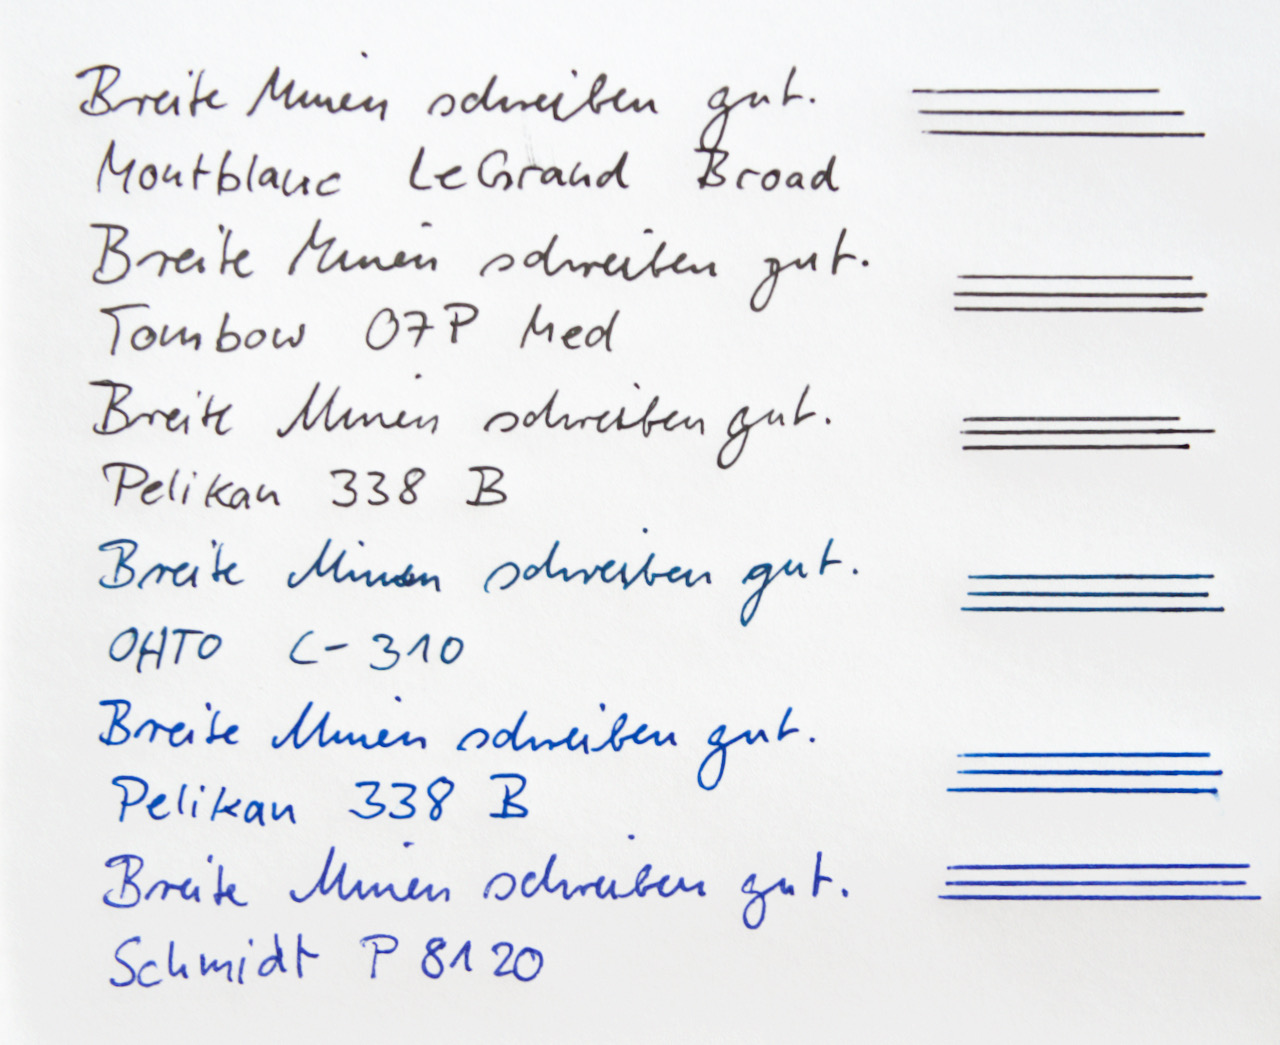 Breite Minen schreiben gut.
Montblanc LeGrand Broad
Breite Minen schreiben gut.
Tombow 07P Med
Breite Minen schreiben gut.
Pelikan 338 B
Breite Minen schreiben gut.
OHTO C-310
Breite Minen schreiben gut.
Pelikan 338 B
Breite Minen schreiben gut.
Schmidt P 8120